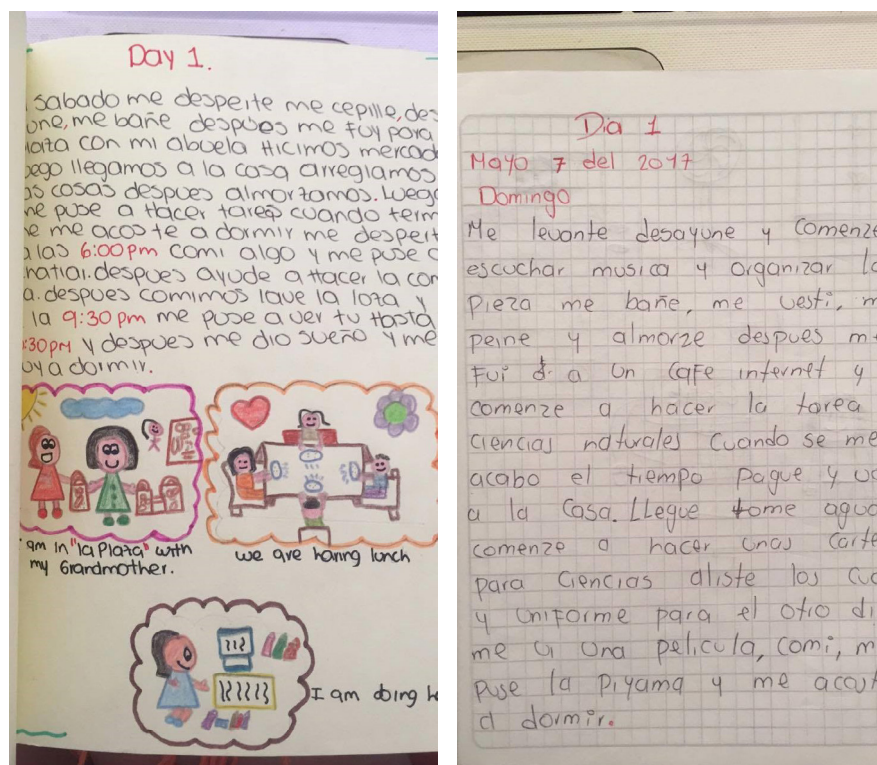 Day 1.
sabado me despeite me cepille, des
une, me bañe despues me fuy para
laza con mi abuela Hicimos mercad
ego llegamos a la casa arreglamos
as cosas despues almorzamos. Luego
me puse a Hacer tareas cuando term
e me acoste a dormir me despert
a las 6:00pm comi algo y me puse
despues ayude a Hacer la com
a. despues comimos lave la loza y
la 9:30 pm me puse a ver tv Hasta
:30pm y despues me dio sueño y me
uy a dormir.
am in "la Plaza" with
my Grandmother.
we are having lunch
I am doing h
Dia 1
Mayo 7 del 2017
Domingo
Me levante desayune y comenze
escuchar musica y organizar la
Pieza me bañe, me vesti, m
peine y almorze despues m
Fui a un cafe internet y
comenze a hacer la tarea
ciencias naturales cuando se me
acabo el tiempo pague y
a la casa. Llegue tome agua
comenze a hacer unas carte
para ciencias aliste los cua
y uniforme para el otro di
me vi una pelicula, comi, m
puse la piyama y me acost
a dormir.